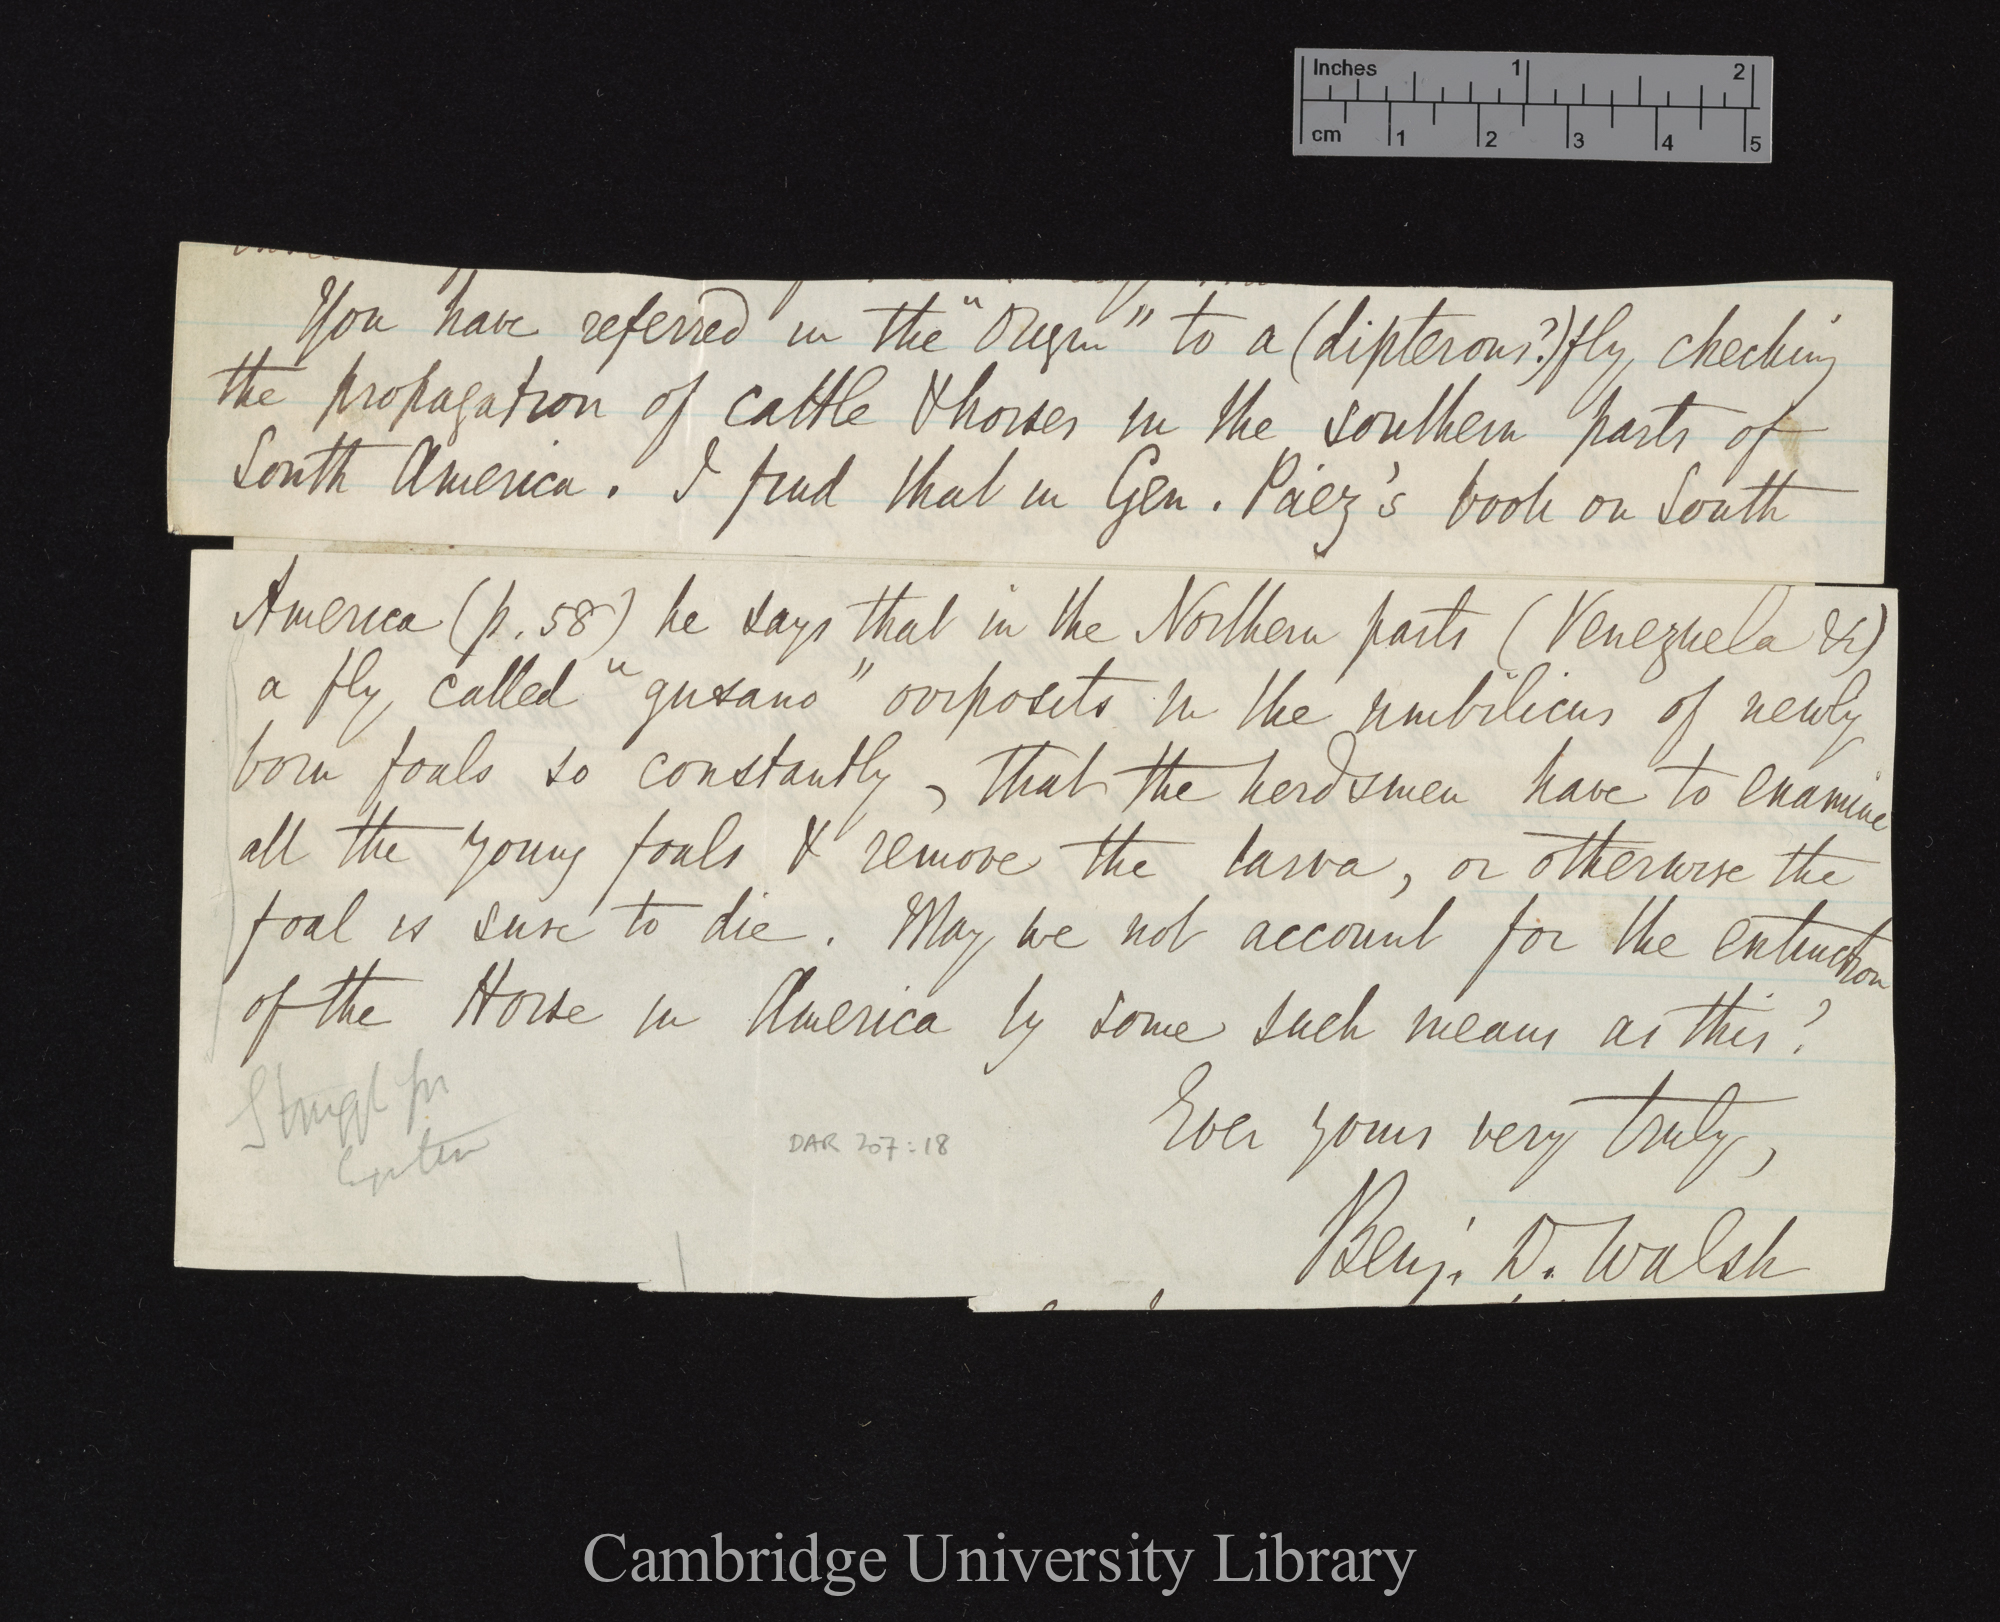 Inches 1 2
cm 1 2 3 4 5
You have referred in the "Origin" to a (dipterous?) fly checking
the propagation of cattle & horses in the southern parts of
South America. I find that in Gen. Páez's book on South
America (p. 58) he says that in the Northern parts (Venezuela &c)
a fly called "gusano" oviposits in the umbilicus of newly
born foals so constantly, that the herdsmen have to examine
all the young foals & remove the larva, or otherwise the
foal is sure to die. May we not account for the extinction
of the Horse in America by some such means as this?
Struggl for
DAR 207:18
Ever yours very truly,
Benj. D. Walsh
Cambridge University Library